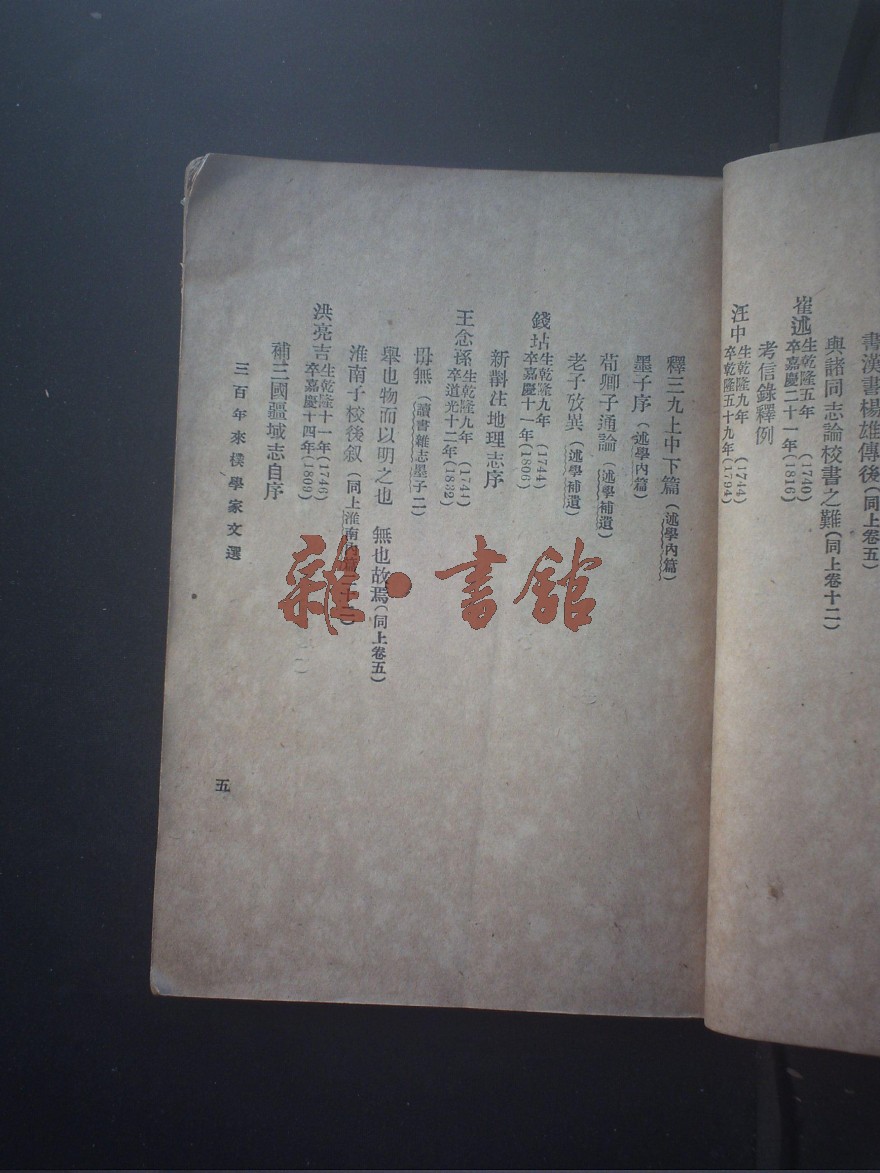 書漢書楊雄傳後(同上卷五)
與諸同志論校書之難(同上卷十二)
崔述生乾隆五年(1740)卒嘉慶二十一年(1816)
考信錄釋例
汪中生乾隆九年(1744)卒乾隆五十九年(1794)
釋三九上中下篇(述學內篇)
墨子序(述學內篇)
荀卿子通論(述學補遺)
老子攷異(述學補遺)
錢坫生乾隆九年(1744)卒嘉慶十一年(1806)
新斠注地理志序
王念孫生乾隆九年(1744)卒道光十二年(1832)
毋無(讀書雜志墨子二)
舉也物而以明之也 無也故焉(同上卷五)
淮南子校後叙(同上淮南內篇二十二)
洪亮吉生乾隆十一年(1746)卒嘉慶十四年(1809)
補三國疆域志自序
三百年來樸學家文選
五
雜·書館